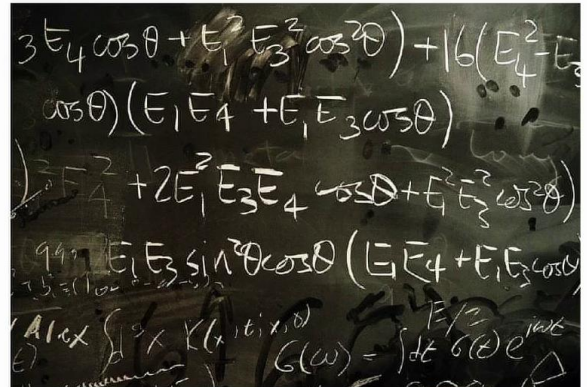 3 E₄ cosθ + E₁² E₃² cos²θ) + 16(E₄² - E₃
cosθ)(E₁E₄ + E₁E₃cosθ)
)² E₄² + 2E₁²E₃E₄ cosθ + E₁²E₃²cos²θ)
E₁E₃ sin²θcosθ (E₁E₄ + E₁E₃cosθ
Alex ∫dx K(x,t;x,0)
G(ω) = ∫dt G(t) e^{iωt}